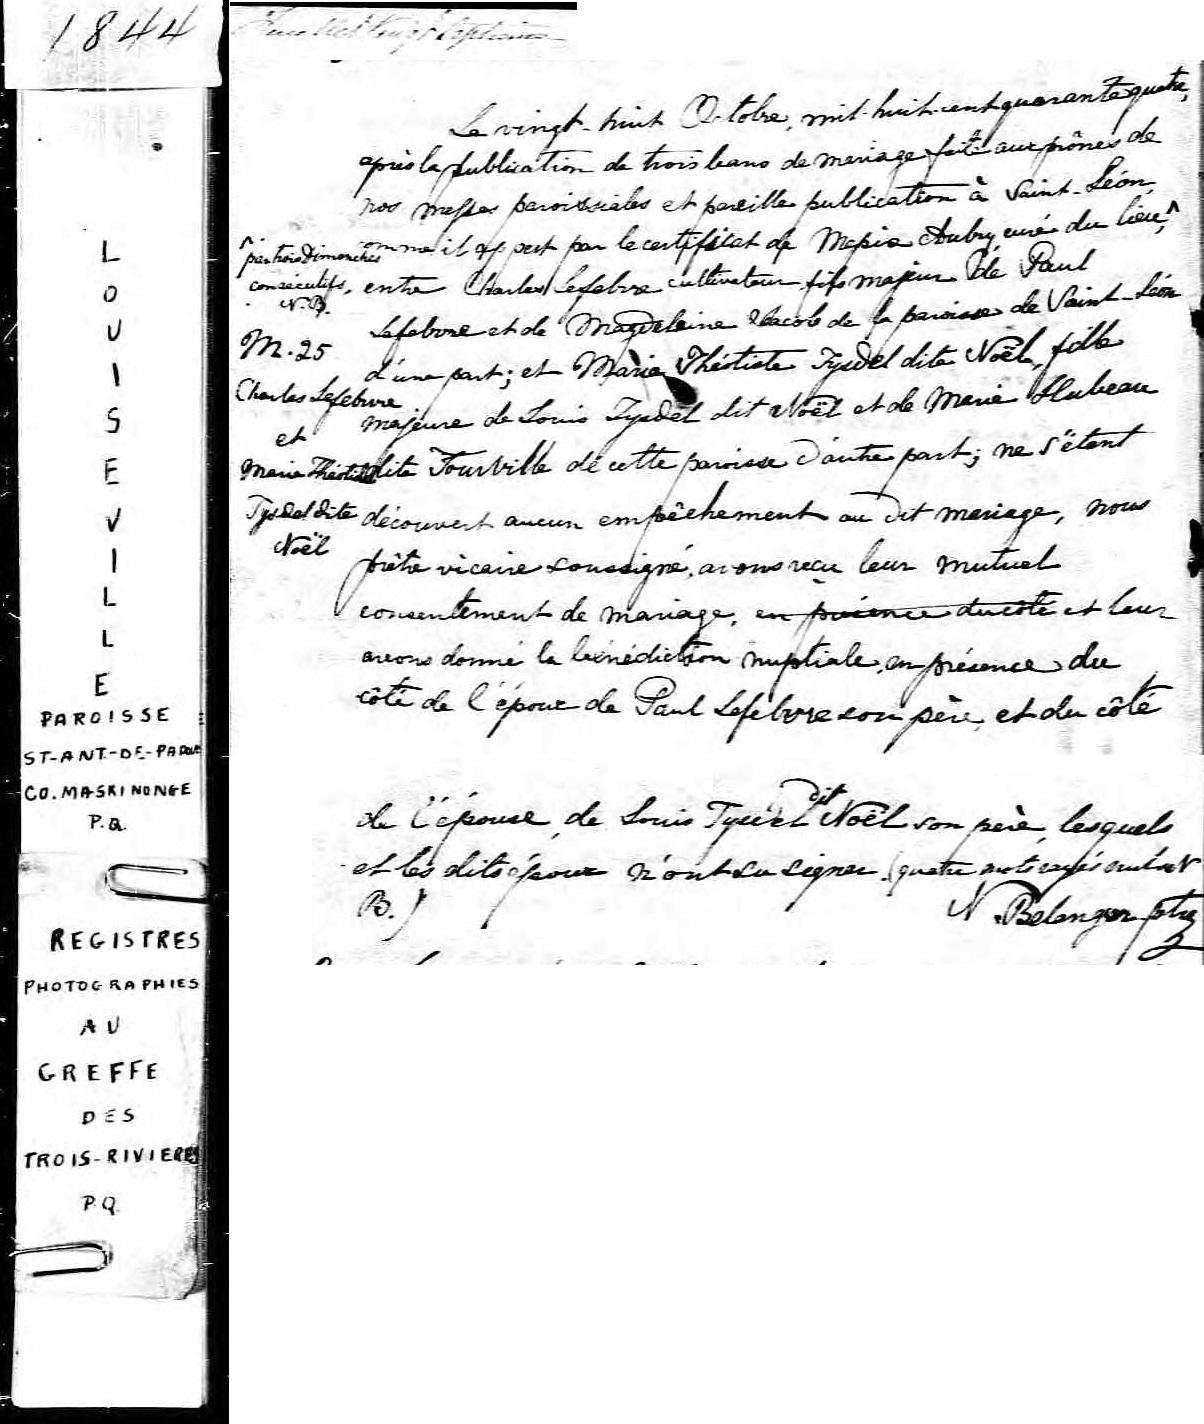 1844
LOUISEVILLE
PAROISSE
ST-ANT-DE-PADOUE
CO. MASKINONGE
P.Q.
REGISTRES
PHOTOGRAPHIES
AU
GREFFE
DES
TROIS-RIVIERES
P.Q.
Le vingt-huit Octobre, mil-huit-cent quarante quatre,
après la publication de trois bans de mariage faite aux prônes de
nos messes paroissiales et pareille publication à Saint-Léon,
comme il appert par le certificat de Messire Aubry, curé du lieu,^
^ par trois Dimanches
consécutifs,
N.B.
entre Charles Lefebvre cultivateur fils majeur de Paul
Lefebvre et de Magdeleine de la paroisse de Saint-Léon
d'une part; et Marie Théotiste Tysdel dite Noël, fille
majeure de Louis Tysdel dit Noël et de Marie Hubeau
dite Tourville de cette paroisse d'autre part; ne s'étant
découvert aucun empêchement au dit mariage, nous
prêtre vicaire soussigné, avons reçu leur mutuel
consentement de mariage, en présence du côté et leur
avons donné la bénédiction nuptiale, en présence du
côté de l'époux de Paul Lefebvre son père, et du côté
M. 25
Charles Lefebvre
et
Marie Théotiste
Tysdel dite
Noël
de l'épouse, de Louis Tysdel dit Noël son père, lesquels
et les dits époux n'ont su signer. (quatre mots rayés nuls N
B.)
N. Belanger ptre